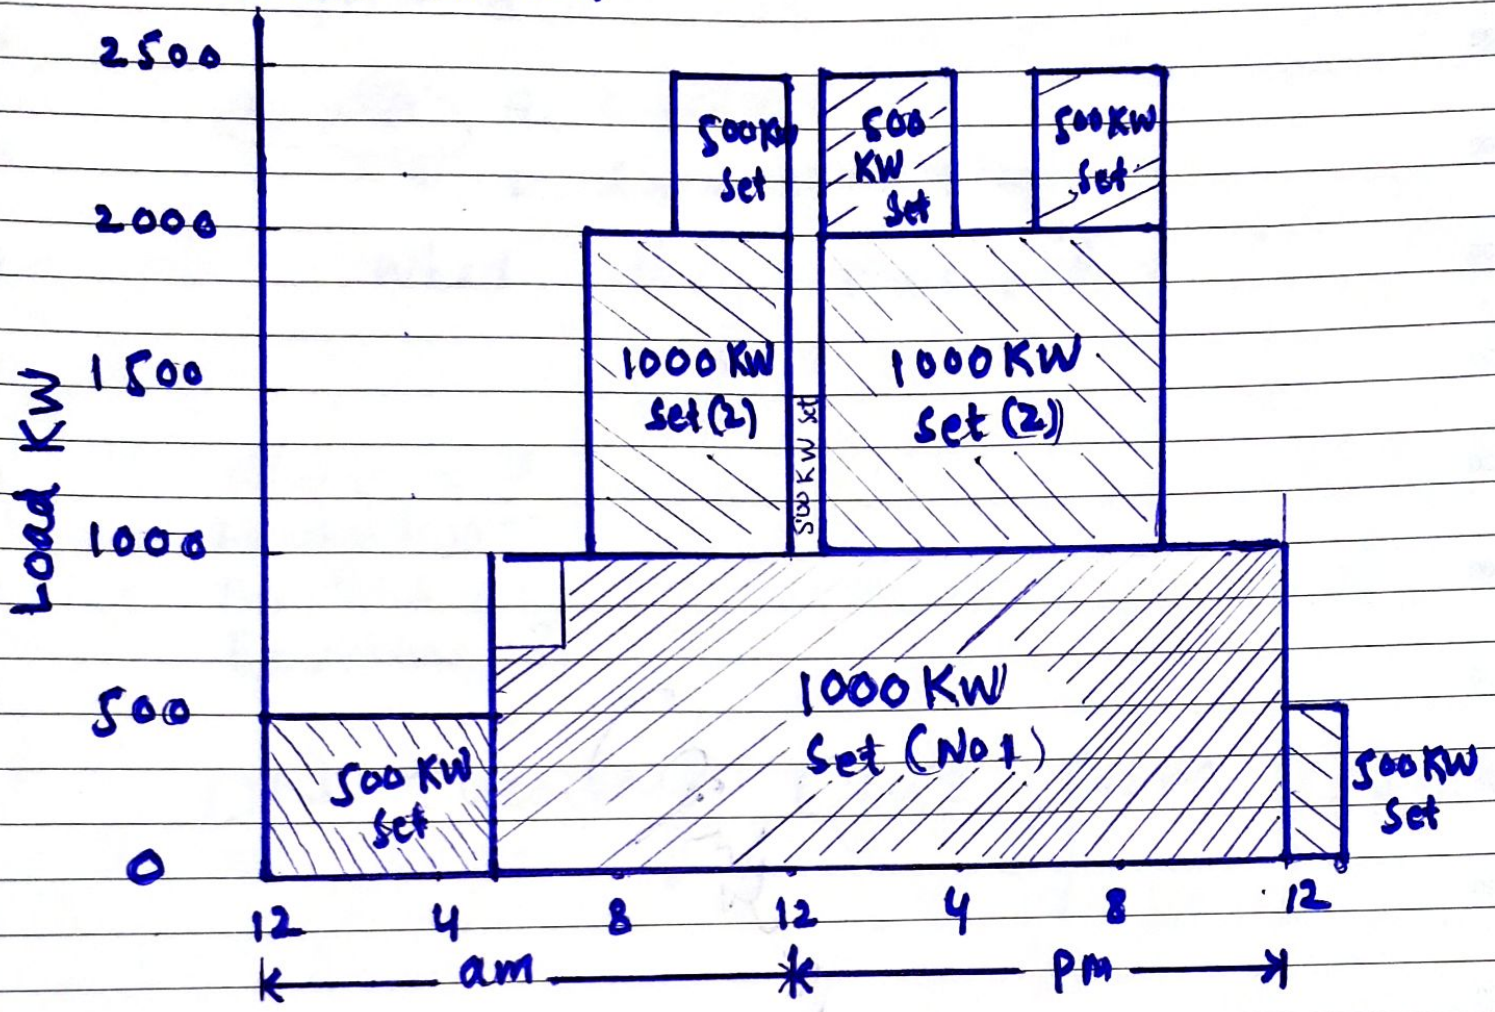 2500
2000
1500
1000
500
0
Load KW
500KW
Set
500
KW
Set
500KW
Set
1000 KW
Set (2)
500 KW Set
1000 KW
Set (2)
1000 KW
Set (No 1)
500 KW
Set
500KW
Set
12 4 8 12 4 8 12
am pm